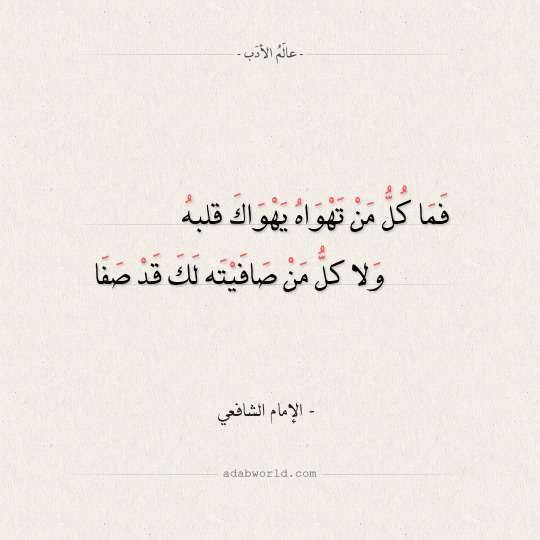 - عالَمُ الأدَب -
فَمَا كُلُّ مَنْ تَهْوَاهُ يَهْوَاكَ قلبهُ
وَلا كلُّ مَنْ صَافَيْتَه لَكَ قَدْ صَفَا
- الإمام الشافعي
adabworld.com